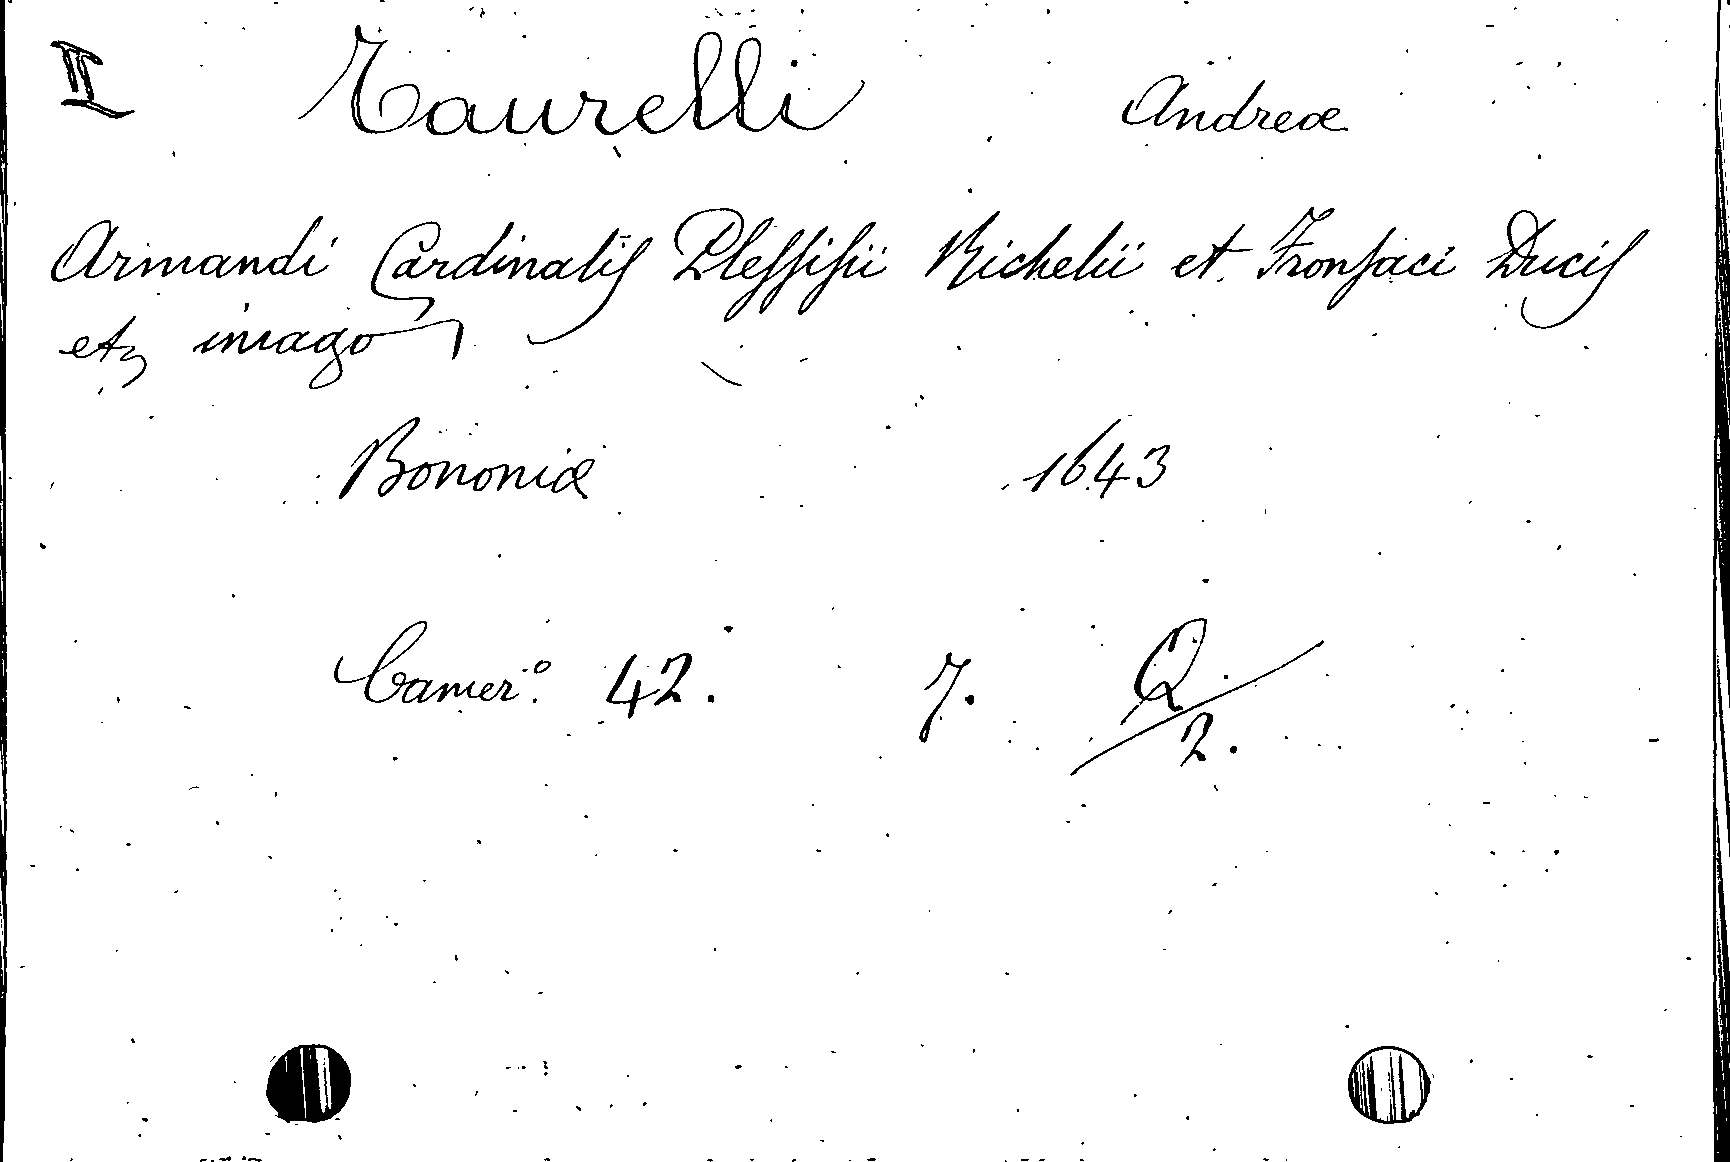 II Taurelli Andreæ
Armandi Cardinalis Plessisii Richelii et Fronsaci Ducis
etz imago
Bononiæ 1643
Camer.º 42. 7. Q/2.